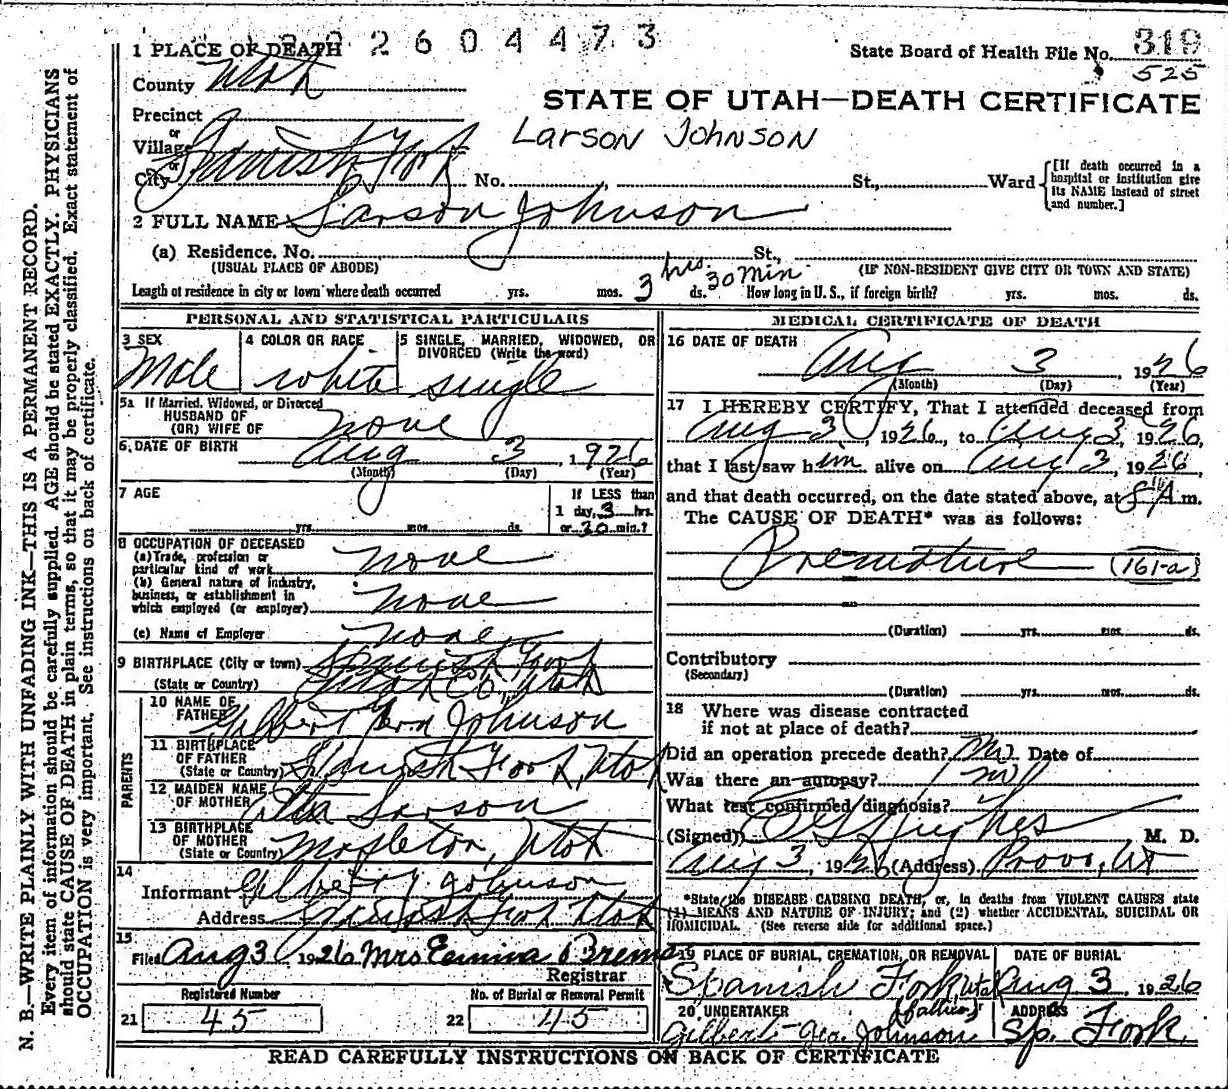 2604473
State Board of Health File No. 319
525
1 PLACE OF DEATH
County Utah
STATE OF UTAH—DEATH CERTIFICATE
Precinct
or
Village
or
City Spanish Fork No. St., Ward
Larson Johnson
[If death occurred in a hospital or institution give its NAME instead of street and number.]
2 FULL NAME Larson Johnson
(a) Residence. No. St.,
(USUAL PLACE OF ABODE) (IF NON-RESIDENT GIVE CITY OR TOWN AND STATE)
Length of residence in city or town where death occurred yrs. mos. ds. 3 hrs. 30 Min How long in U. S., if foreign birth? yrs. mos. ds.
PERSONAL AND STATISTICAL PARTICULARS
3 SEX 4 COLOR OR RACE 5 SINGLE, MARRIED, WIDOWED, OR DIVORCED (Write the word)
Male white single
5a If Married, Widowed, or Divorced
HUSBAND OF
(OR) WIFE OF none
6. DATE OF BIRTH Aug 3, 1926
(Month) (Day) (Year)
7 AGE If LESS than
1 day, 3 hrs.
yrs. mos. ds. or 30 min.?
8 OCCUPATION OF DECEASED
(a) Trade, profession or
particular kind of work none
(b) General nature of industry,
business, or establishment in
which employed (or employer) none
(c) Name of Employer none
9 BIRTHPLACE (City or town) Spanish Fork
(State or Country) Utah Co, Utah
PARENTS
10 NAME OF
FATHER Gilbert Johnson
11 BIRTHPLACE
OF FATHER
(State or Country) Spanish Fork, Utah
12 MAIDEN NAME
OF MOTHER Larson
13 BIRTHPLACE
OF MOTHER
(State or Country) Mapleton, Utah
14
Informant Gilbert Johnson
Address Spanish Fork Utah
15
Filed Aug 3, 1926 Mrs Emma
Registrar
Registered Number No. of Burial or Removal Permit
21 45 22 45
MEDICAL CERTIFICATE OF DEATH
16 DATE OF DEATH
Aug 3, 1926
(Month) (Day) (Year)
17 I HEREBY CERTIFY, That I attended deceased from
Aug 3, 1926, to Aug 3, 1926,
that I last saw him alive on Aug 3, 1926
and that death occurred, on the date stated above, at A m.
The CAUSE OF DEATH* was as follows:
Premature (161-a)
(Duration) yrs. mos. ds.
Contributory
(Secondary)
(Duration) yrs. mos. ds.
18 Where was disease contracted
if not at place of death?
Did an operation precede death? no Date of
Was there an autopsy? no
What test confirmed diagnosis?
(Signed) Hughes M. D.
Aug 3, 1926 (Address) Provo, Ut
*State the DISEASE CAUSING DEATH, or, in deaths from VIOLENT CAUSES state
(1) MEANS AND NATURE OF INJURY; and (2) whether ACCIDENTAL, SUICIDAL OR
HOMICIDAL. (See reverse side for additional space.)
19 PLACE OF BURIAL, CREMATION, OR REMOVAL DATE OF BURIAL
Spanish Fork Utah Aug 3, 1926
20 UNDERTAKER (father) ADDRESS
Gilbert Geo. Johnson Sp. Fork.
READ CAREFULLY INSTRUCTIONS ON BACK OF CERTIFICATE
N. B.—WRITE PLAINLY WITH UNFADING INK—THIS IS A PERMANENT RECORD.
Every item of information should be carefully supplied. AGE should be stated EXACTLY. PHYSICIANS
should state CAUSE OF DEATH in plain terms, so that it may be properly classified. Exact statement of
OCCUPATION is very important. See instructions on back of certificate.